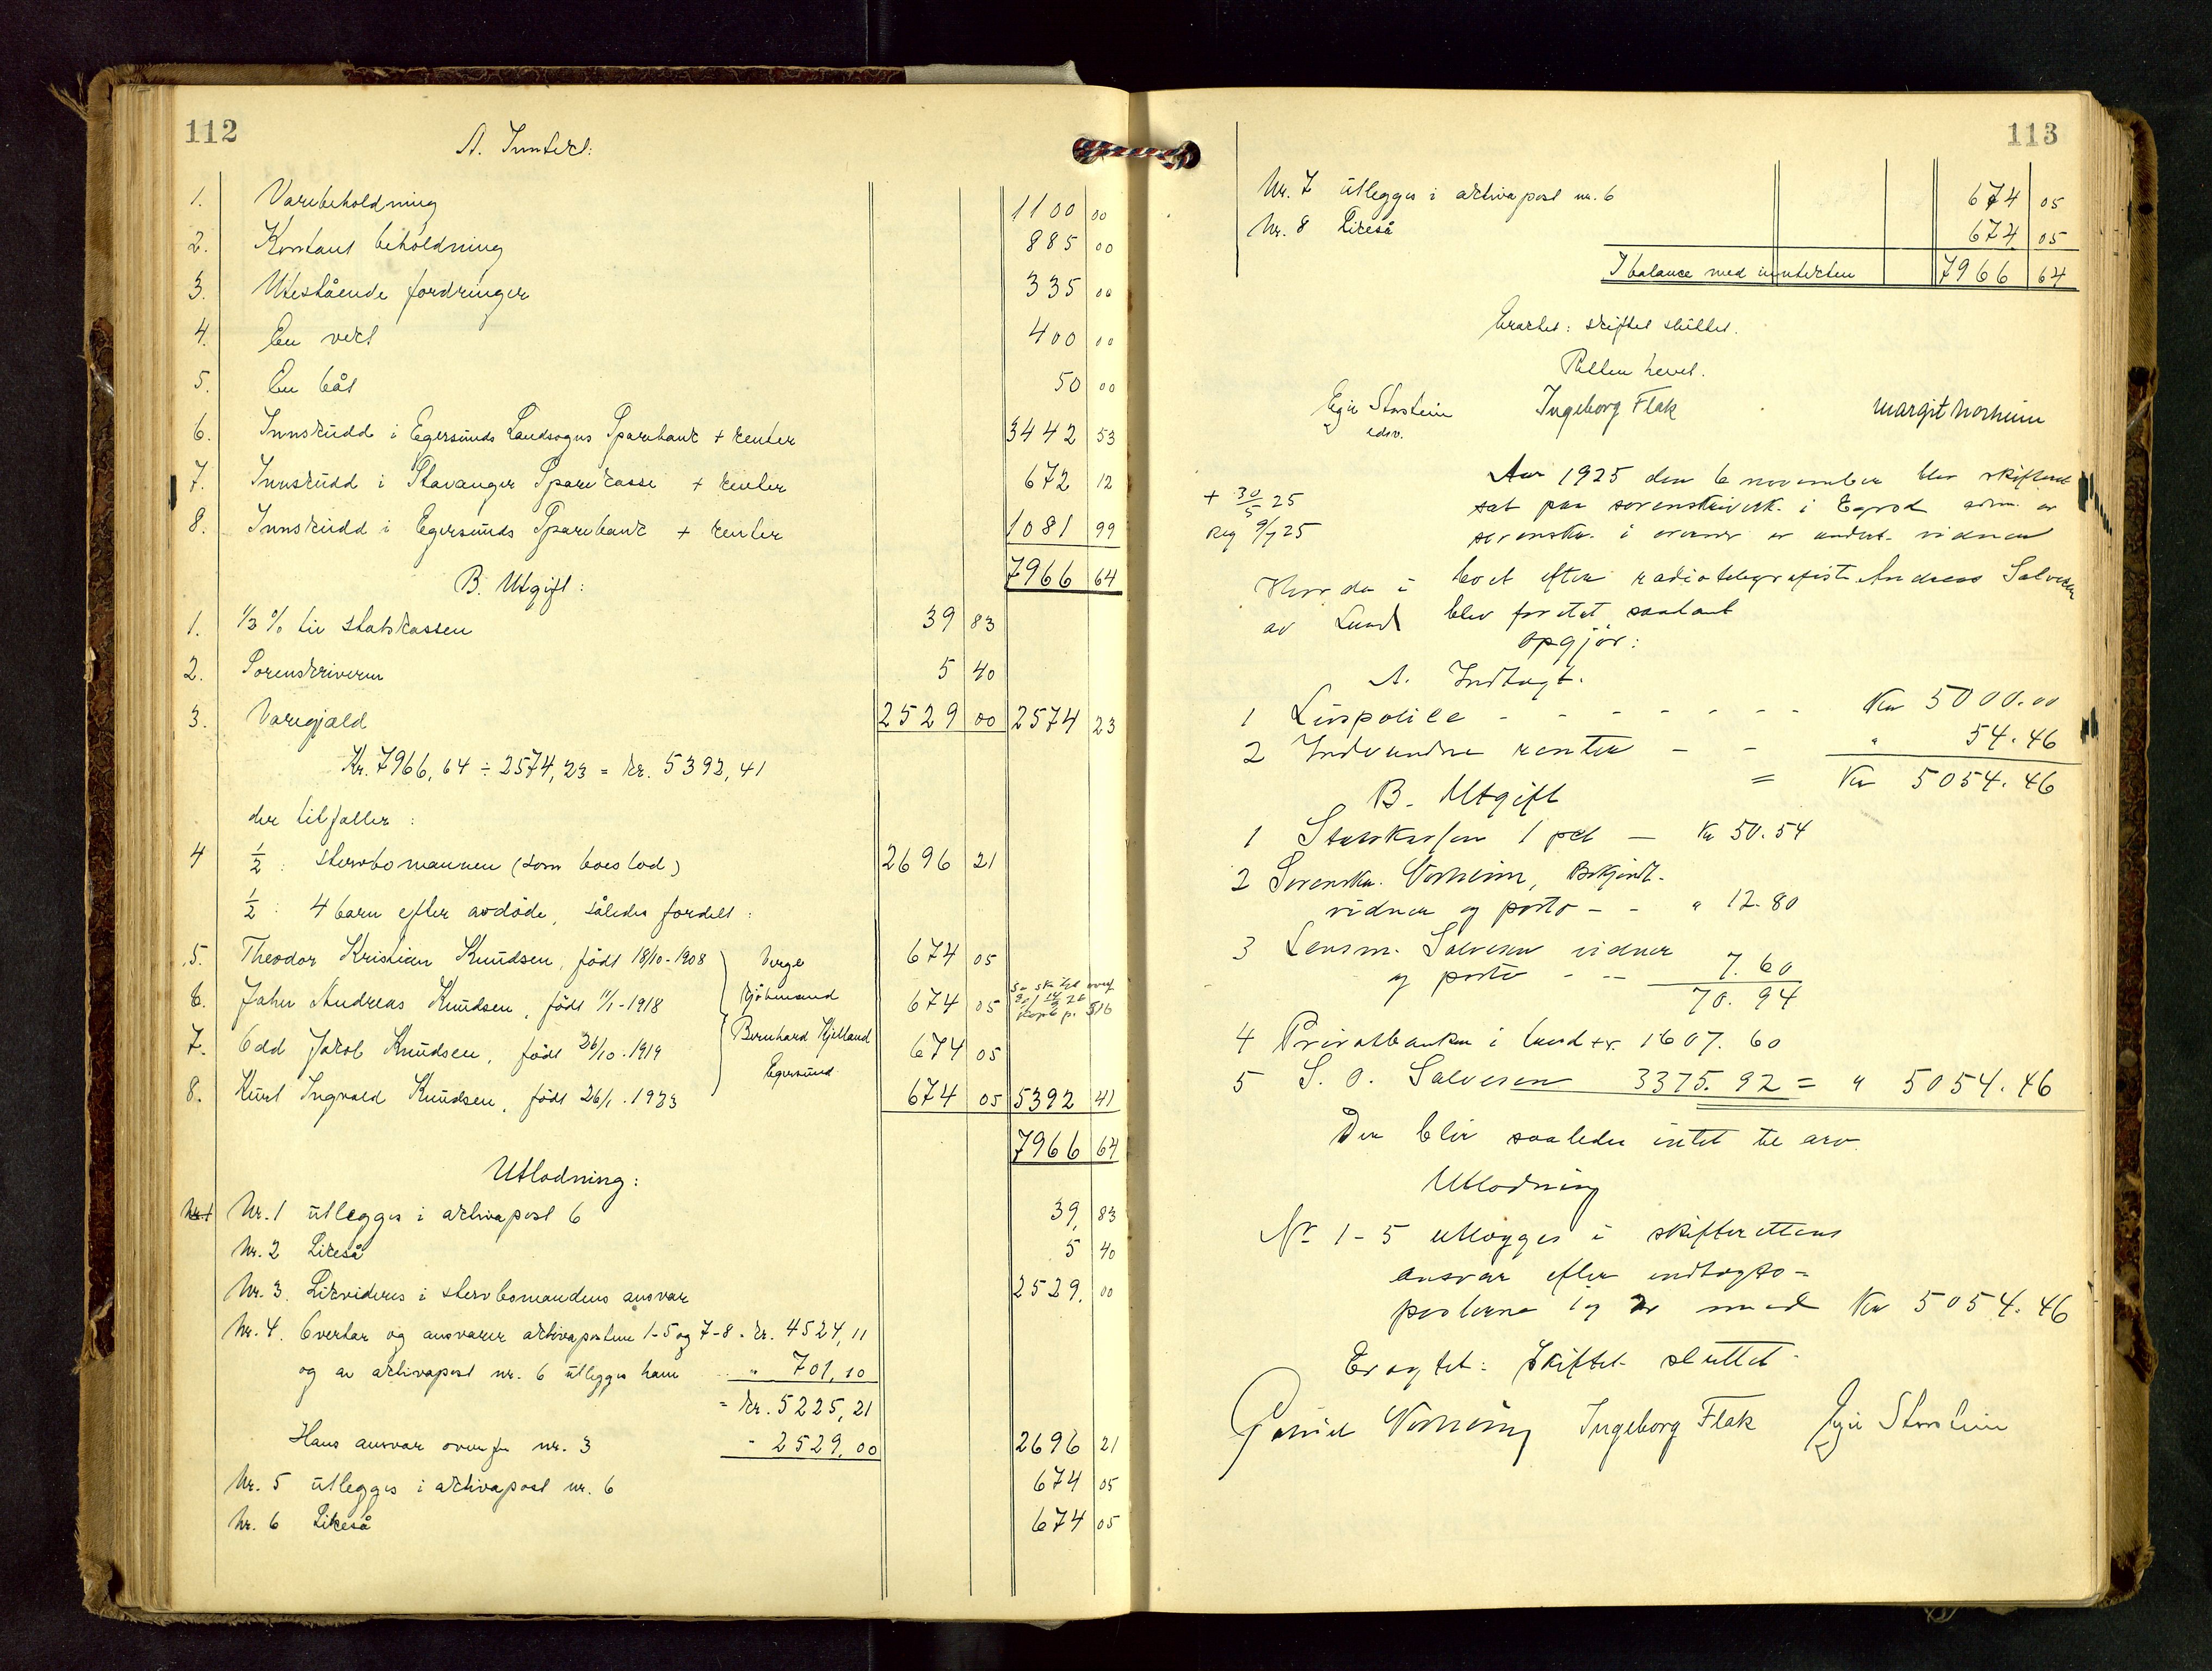 112
A. Inntekt:
1. Varebeholdning 1100 00
2. Kontant beholdning 885 00
3. Utestående fordringer 335 00
4. En vekt 400 00
5. En båt 50 00
6. Innskudd i Egersunds Landsogns Sparebank + renter 3442 53
7. Innskudd i Stavanger Sparekasse + renter 672 12
8. Innskudd i Egersunds Sparebank + renter 1081 99
7966 64
B. Utgift:
1. 1/2 % til statskassen 39 83
2. Sorenskriveren 5 40
3. Varegjæld 2529 00 2574 23
Kr. 7966,64 ÷ 2574,23 = kr. 5392,41
der tilfaller:
4 1/2: stervbomannen (som boeslod) 2696 21
1/2: 4 barn efter avdöde, således fordelt:
5. Theodor Kristian Knudsen, födt 18/10-1908 Verge 674 05
6. John Andreas Knudsen, födt 11/1-1918 kjöbmand 674 05
7. Odd Jakob Knudsen, födt 26/10.1919 Bernhard Kjelland 674 05
Egersund
8. Kurt Ingvald Knudsen, födt 26/1.1923 674 05 5392 41
7966 64
Utlodning:
Nr. 1 Nr. 1 utlegges i aktivapost 6 39, 83
Nr. 2 Likeså 5 40
Nr. 3. Likvideres i stervbomandens ansvar 2529, 00
Nr. 4. Overtar og ansvarer aktivapostene 1-5 og 7-8 - kr. 4524,11
og av aktivapost nr. 6 utlegges ham " 701,10
= kr. 5225,21
Hans ansvar ovenfor nr. 3 - 2529,00 2696 21
Nr. 5 utlegges i aktivapost nr. 6 674 05
Nr. 6 Likeså 674 05
113
Nr. 7 utlegges i aktivapost nr. 6 674 05
Nr. 8 Likeså 674 05
I balance med inntekten 7966 64
Eractet: skiftet sluttet.
Retten hevet.
Egil Storstein Ingeborg Flak Margit Norheim
edsv.
Aar 1925 den 6 november blev skifteret
+ 30/5 25
sat paa sorenskriverk. i Egrsd adm. av
Reg 9/7 25
sorenskr. i overvær av undert. vidner
Hvor da i boet efter radiotelegrafist Andreas Salvesen
av Lund blev foretat saadant
opgjør:
A. Indtægt.
1 Livspolice - - - - - - - Kr 5000.00
2 Indvundne renter - - " 54.46
= Kr 5054.46
B. Utgift
1 Statskassen 1 pct — Kr 50.54
2 Sorenskr. Norheim, Bekjendt.
vidner og porto - - " 12.80
3 Lensm. Salvesen vidner
og porto - -- 7.60
70.94
4 Privatbanken i Lund kr. 1607.60
5 S. O. Salvesen 3375.92 = " 5054.46
Der blir saaledes intet til arv.
Utlodning
Nr 1-5 utlægges i skifterettens
ansvar efter indtægts-
posterne 1 og 2 med Kr 5054.46
Eragtet: Skiftet sluttet.
Norheim Ingeborg Flak Egil Storstein